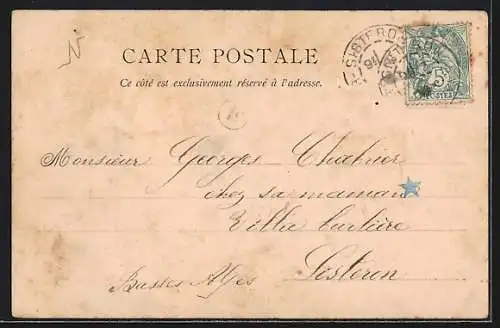 CARTE POSTALE
Ce côté est exclusivement réservé à l'adresse.
SISTERON
5
POSTES
Monsieur Georges
chez sa maman
Villa
Sisteron
Basses Alpes